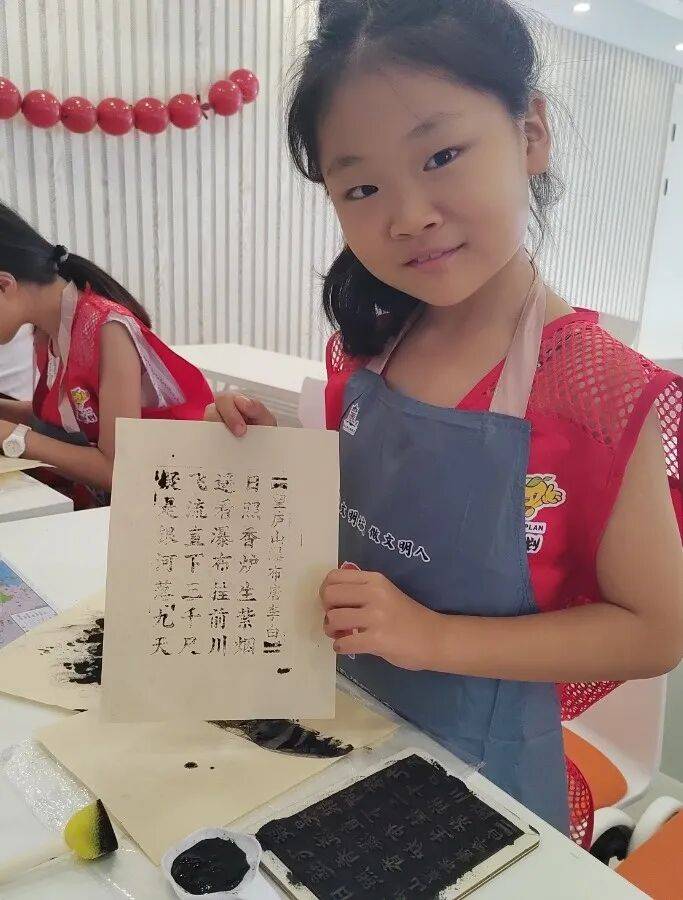 望庐山瀑布唐李白
日照香炉生紫烟
遥看瀑布挂前川
飞流直下三千尺
疑是银河落九天
文明
做文明人
PLAN
划